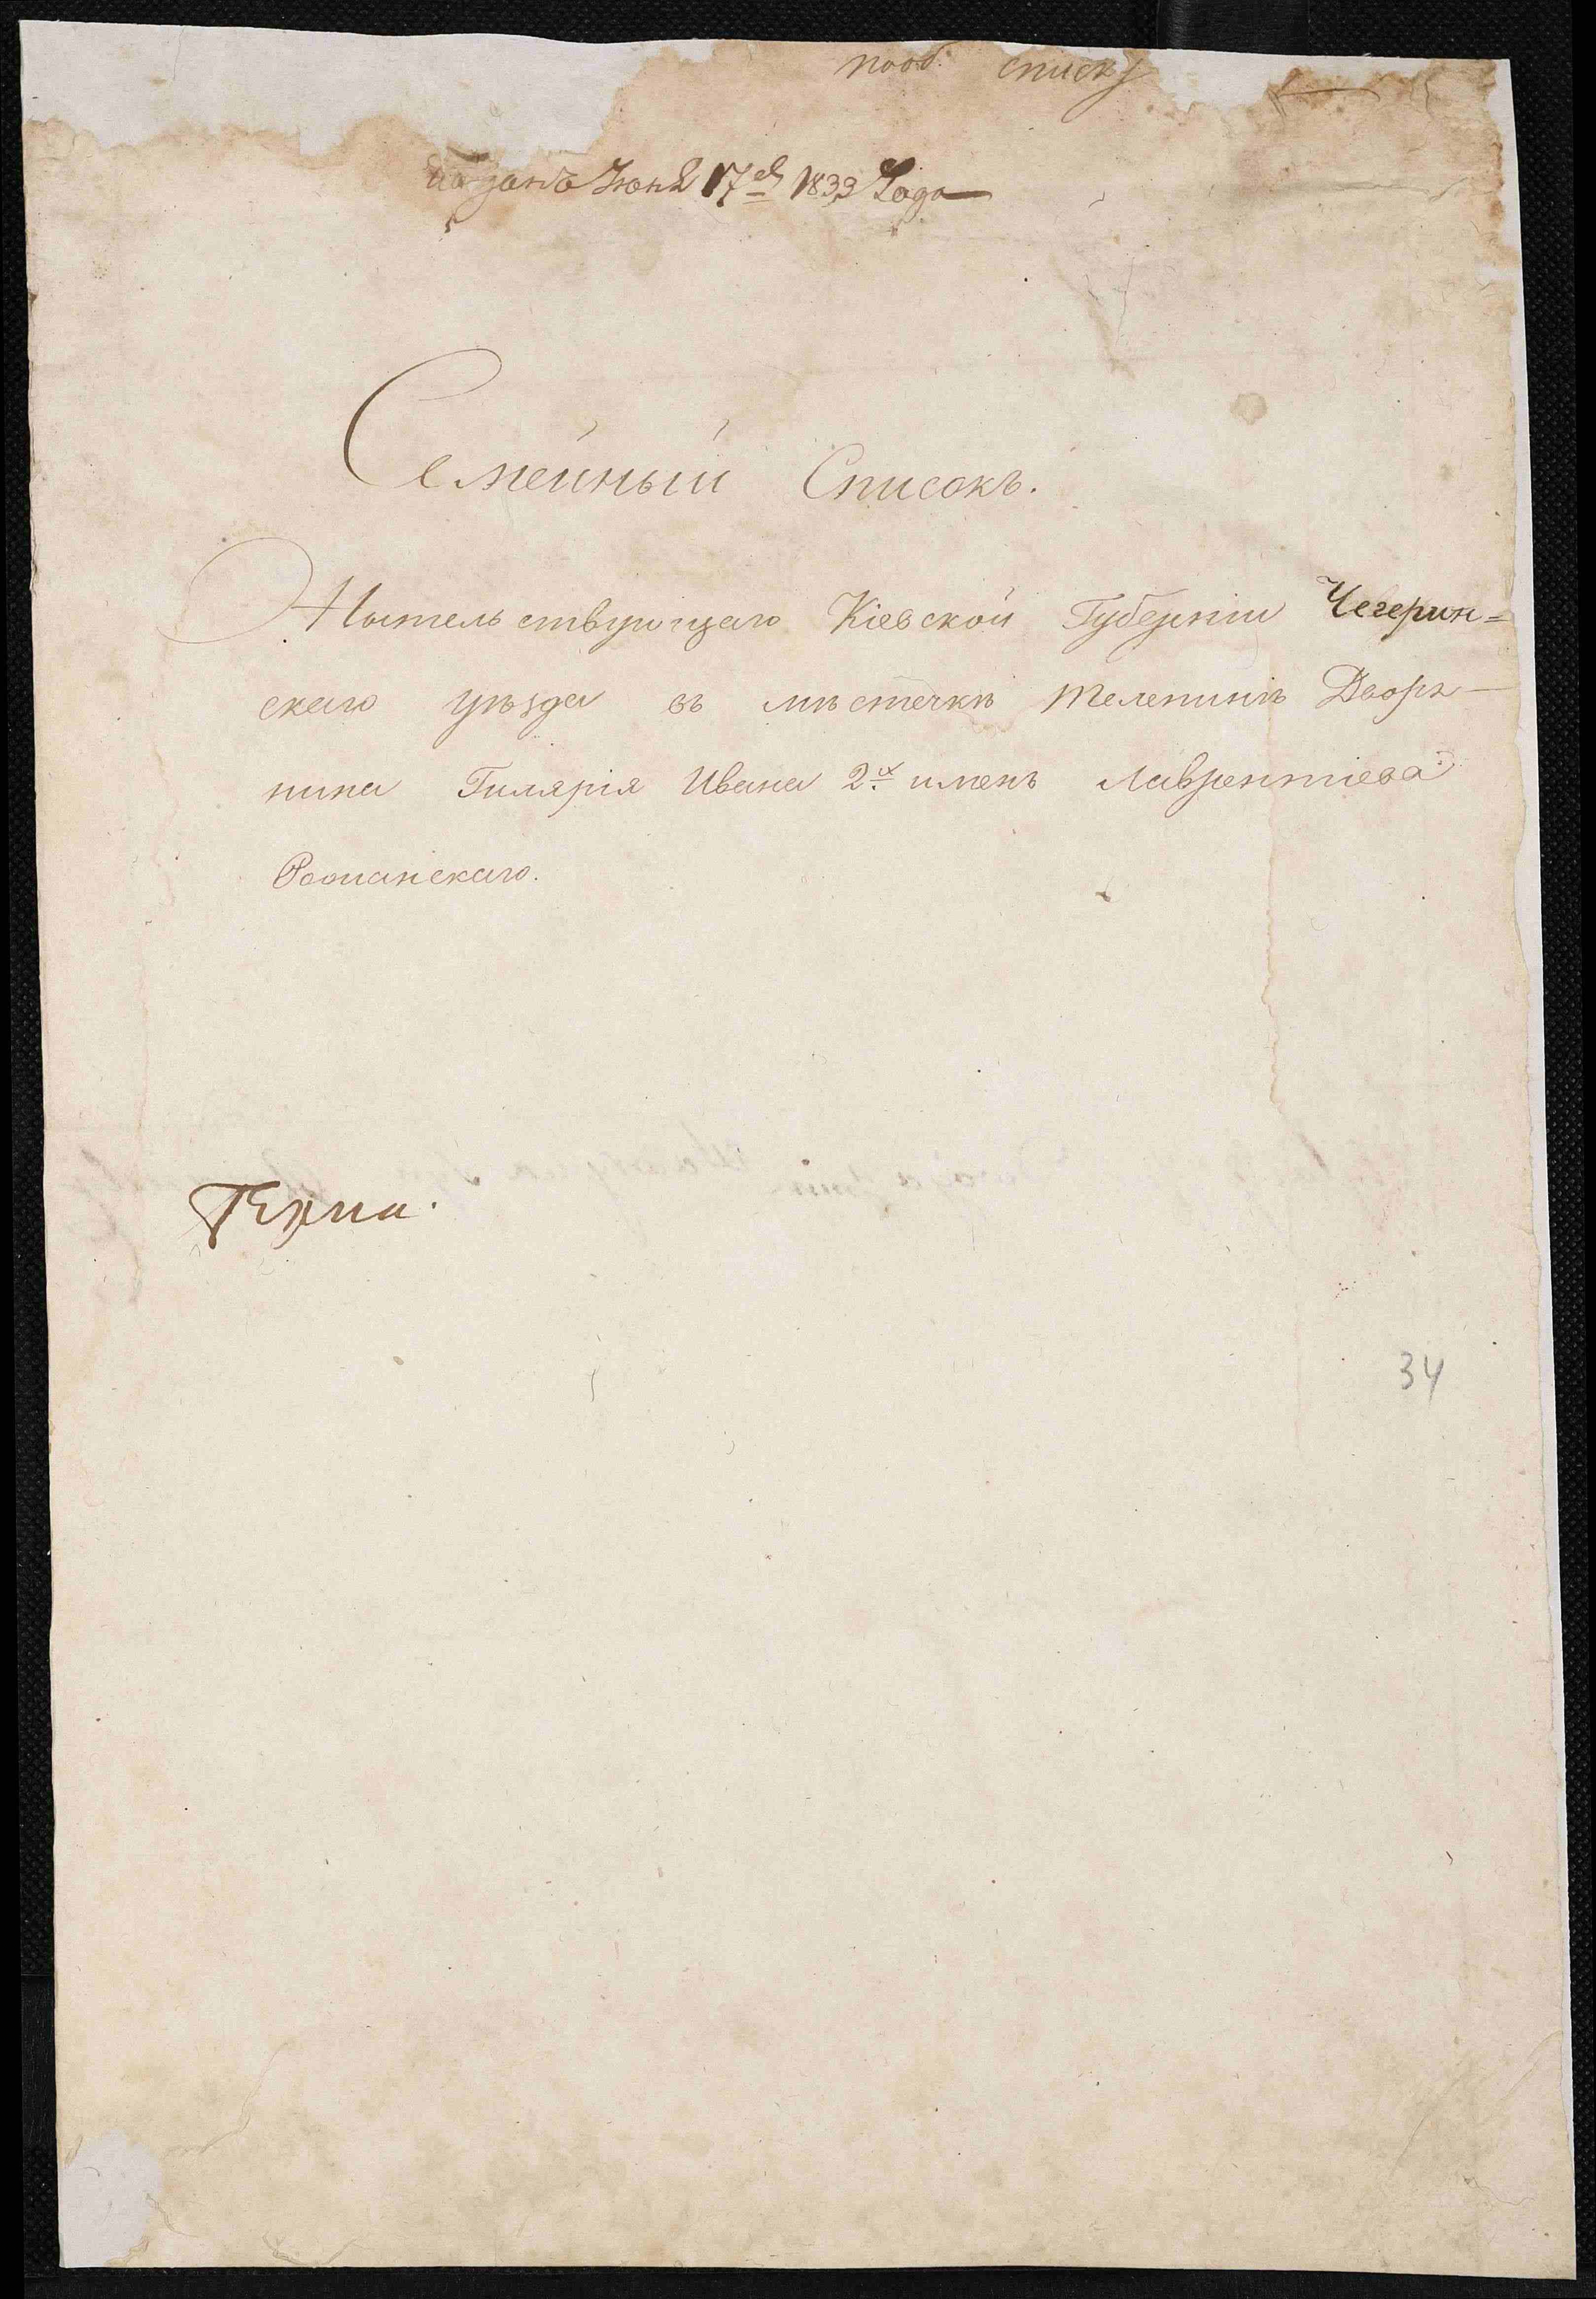 списку
Іюня 17го 1833 Года
Семейный Списокъ.
Жительствующаго Кіевской Губерніи Чегерин=
скаго уѣзда въ мѣстечкѣ Телепинѣ Дворя-
нина Гилярія Ивана 2х именъ Лаврентіева
34